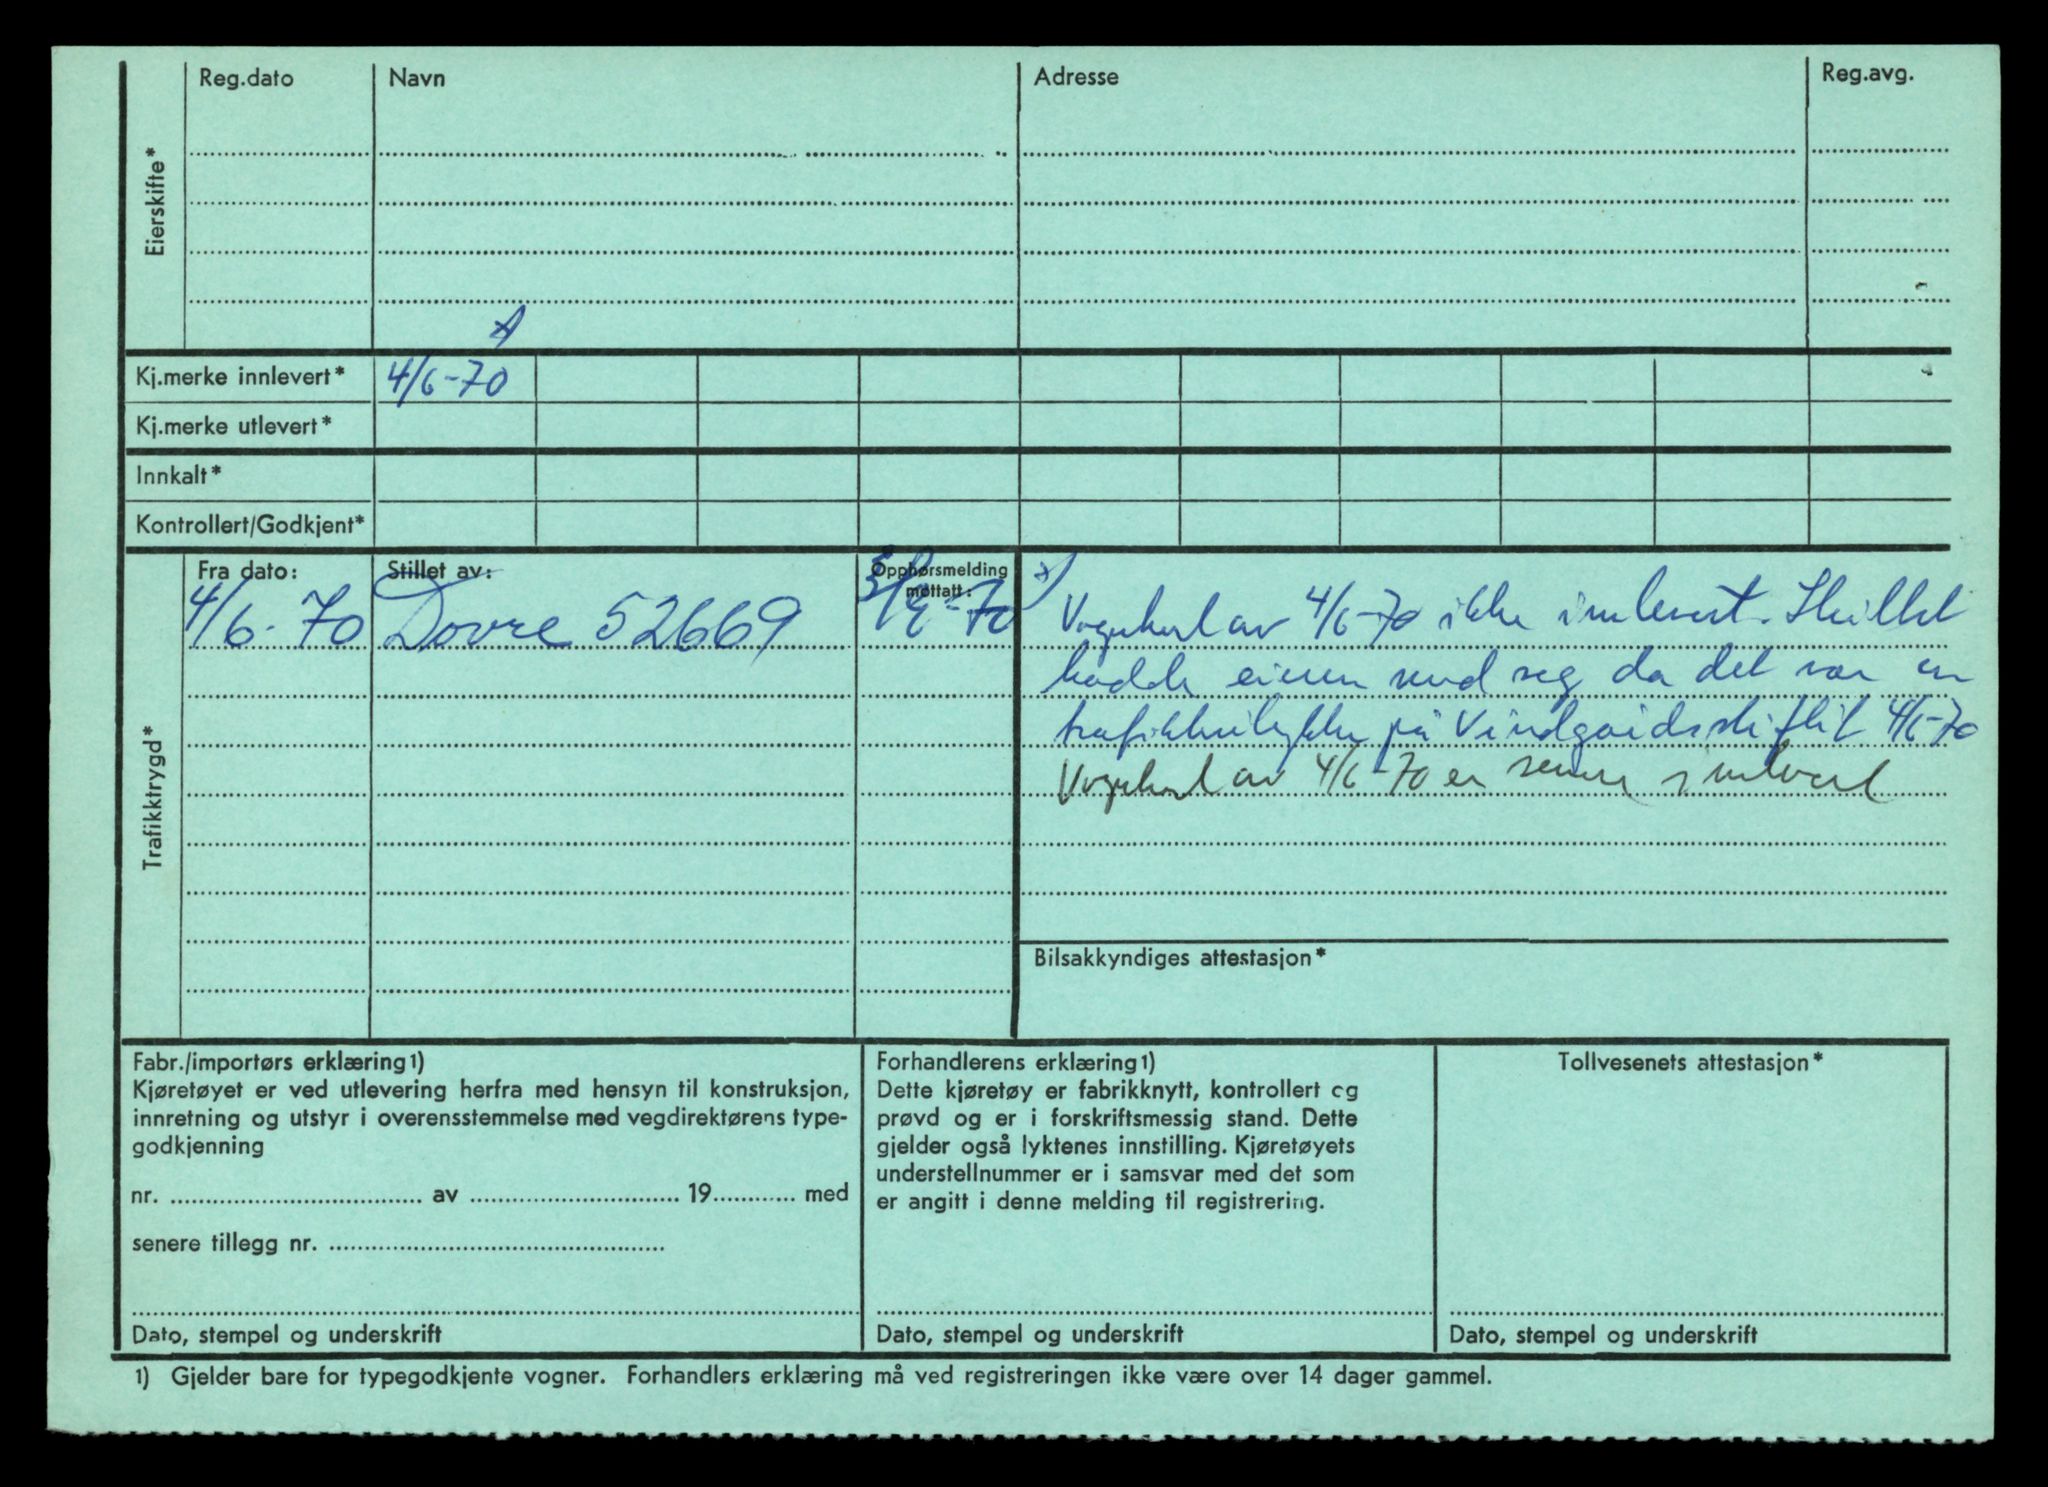 Reg.dato Navn Adresse Reg.avg.
Eierskifte*
Kj.merke innlevert* 4/6-70 *)
Kj.merke utlevert*
Innkalt*
Kontrollert/Godkjent*
Trafikktrygd*
Fra dato: Stillet av: Opphørsmelding mottatt:
4/6-70 Dovre 52669
*)
Vognkort av 4/6-70 ikke innlevert. Skiltet
hadde eieren med seg da det var en
trafikkulykke på 4/6-70
Vognkort av 4/6-70 er senere innlevert
Bilsakkyndiges attestasjon*
Fabr./importørs erklæring1)
Kjøretøyet er ved utlevering herfra med hensyn til konstruksjon,
innretning og utstyr i overensstemmelse med vegdirektørens type-
godkjenning
nr. av 19 med
senere tillegg nr.
Dato, stempel og underskrift
Forhandlerens erklæring1)
Dette kjøretøy er fabrikknytt, kontrollert og
prøvd og er i forskriftsmessig stand. Dette
gjelder også lyktenes innstilling. Kjøretøyets
understellnummer er i samsvar med det som
er angitt i denne melding til registrering.
Dato, stempel og underskrift
Tollvesenets attestasjon*
Dato, stempel og underskrift
1) Gjelder bare for typegodkjente vogner. Forhandlers erklæring må ved registreringen ikke være over 14 dager gammel.